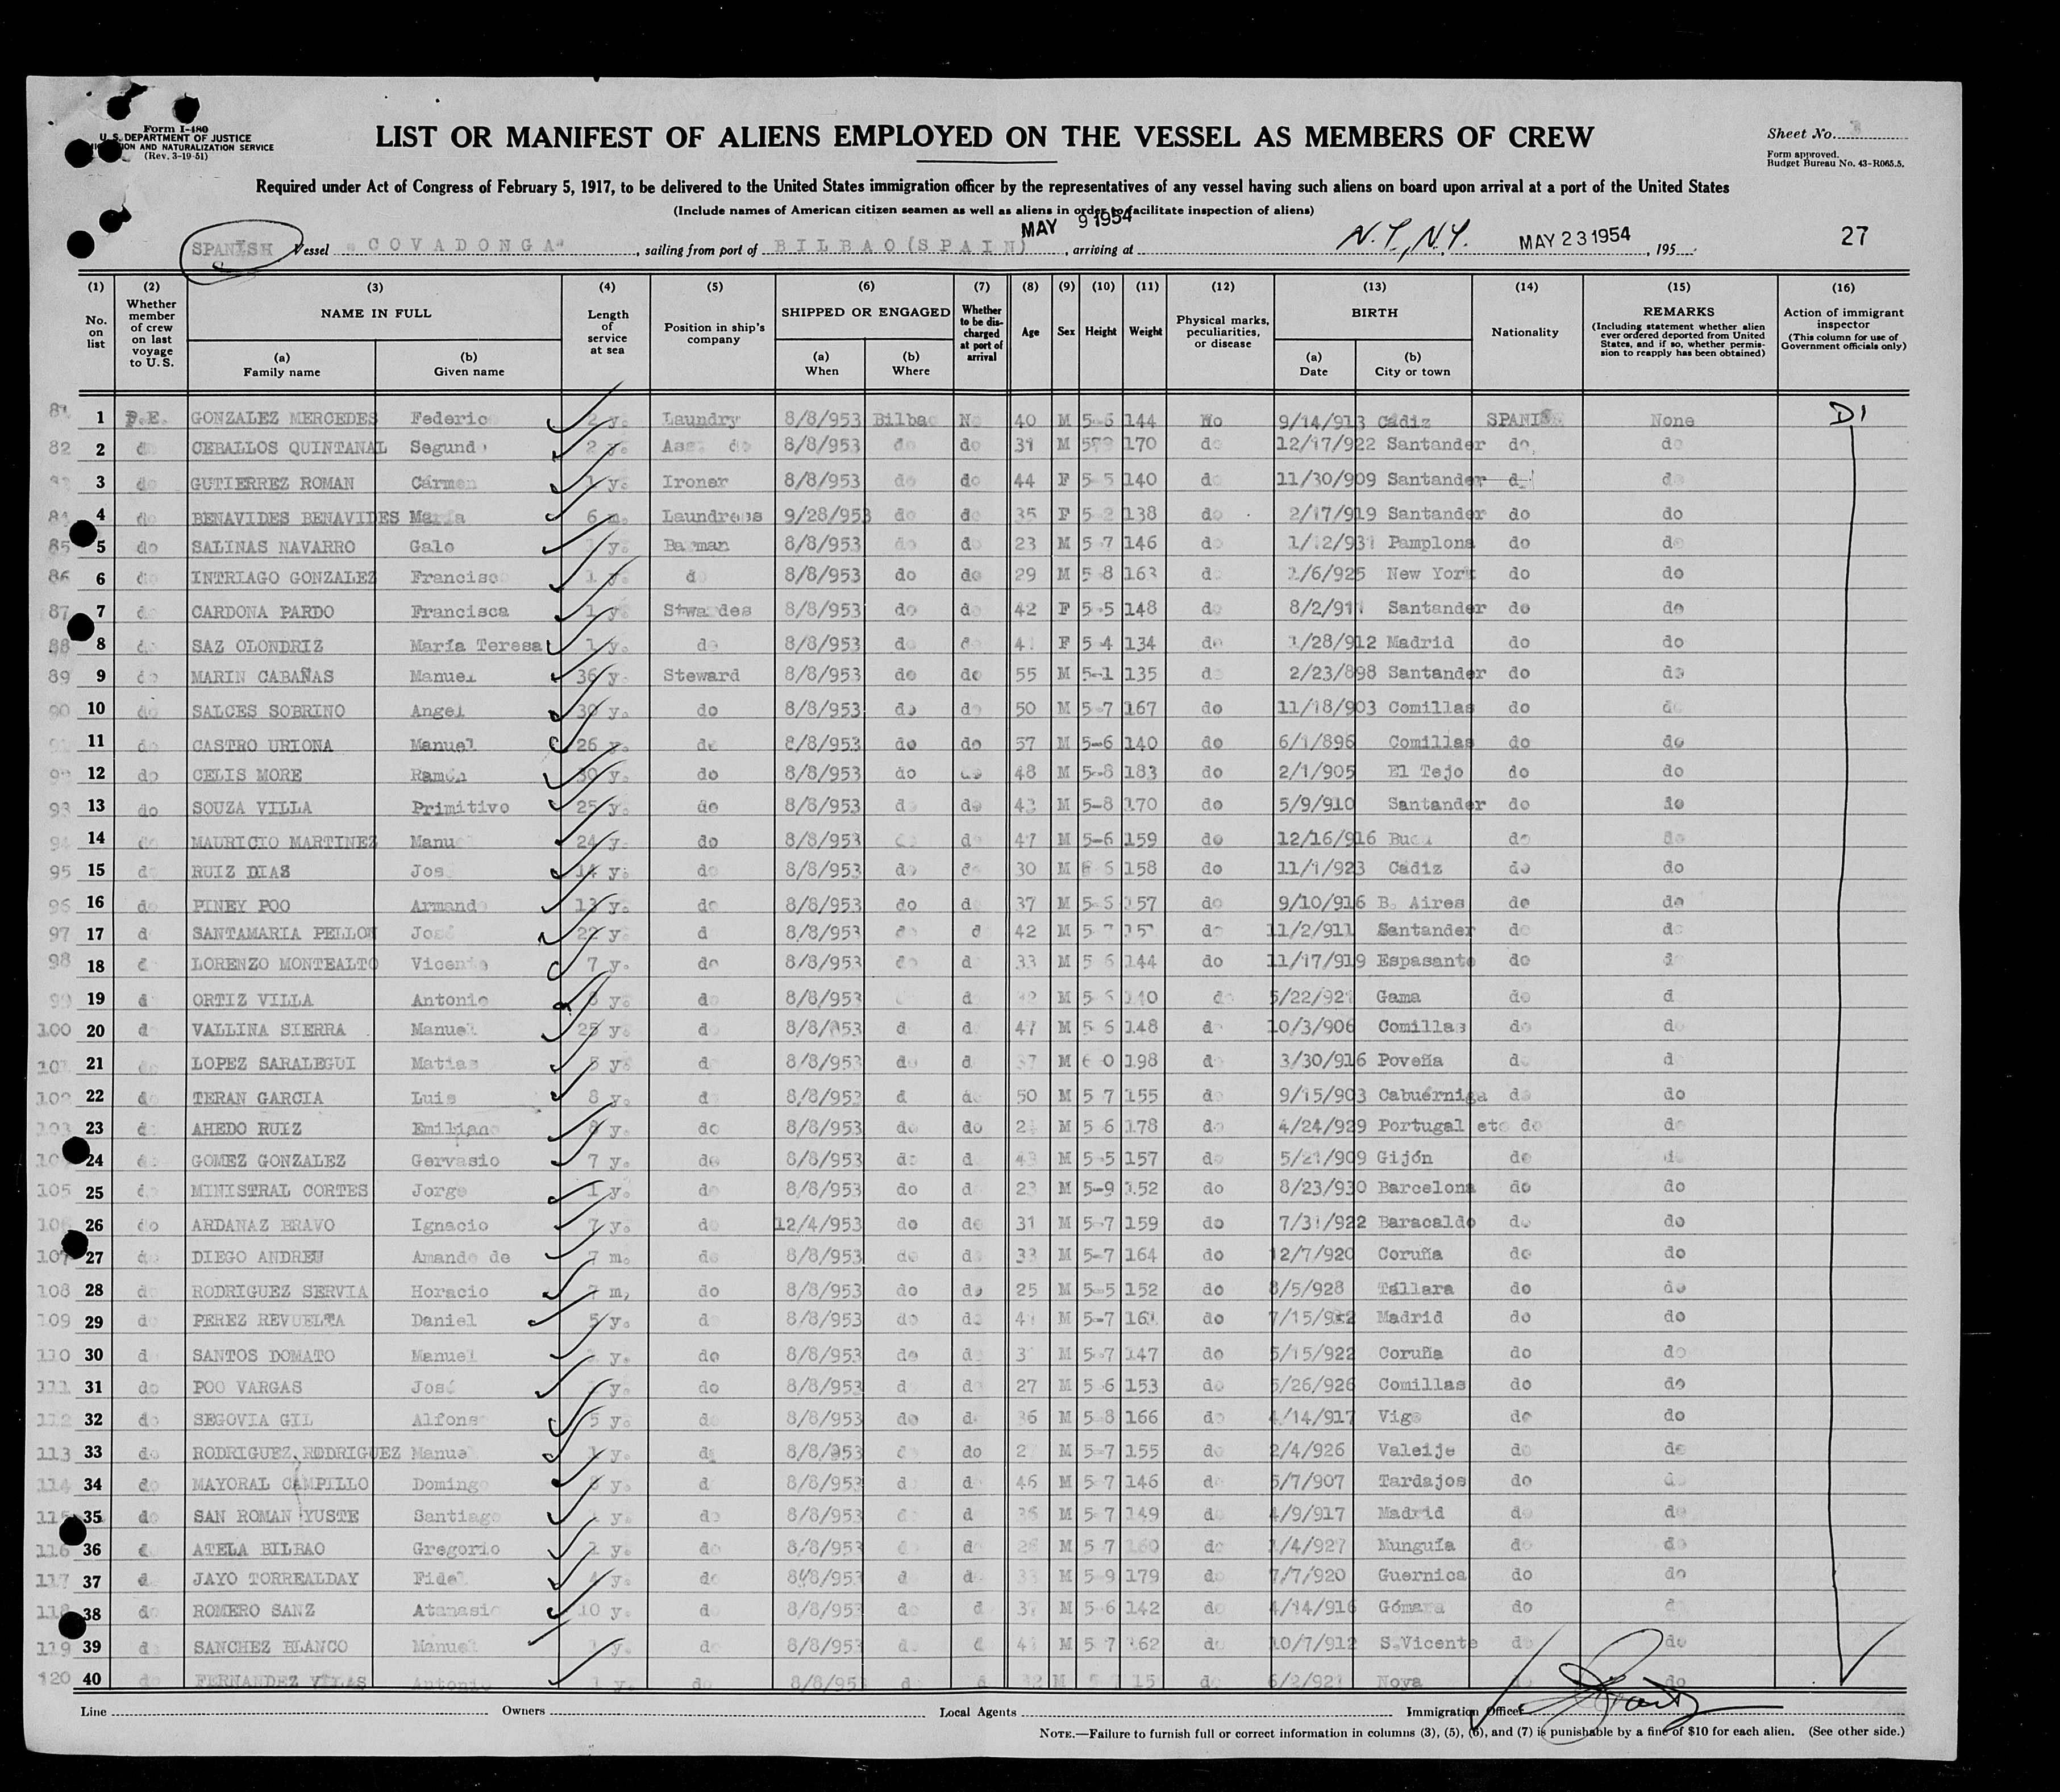 Form I-480
U. S. DEPARTMENT OF JUSTICE
ION AND NATURALIZATION SERVICE
(Rev. 3-19-51)
LIST OR MANIFEST OF ALIENS EMPLOYED ON THE VESSEL AS MEMBERS OF CREW
Sheet No.
Form approved.
Budget Bureau No. 43-R065.5.
Required under Act of Congress of February 5, 1917, to be delivered to the United States immigration officer by the representatives of any vessel having such aliens on board upon arrival at a port of the United States
(Include names of American citizen seamen as well as aliens in order to facilitate inspection of aliens)
SPANISH Vessel "COVADONGA", sailing from port of BILBAO(SPAIN) MAY 9 1954, arriving at N.Y., N.Y. MAY 23 1954, 195 27
(1) (2) (3) (4) (5) (6) (7) (8) (9) (10) (11) (12) (13) (14) (15) (16)
No. on list
Whether member of crew on last voyage to U. S.
NAME IN FULL
(a) Family name
(b) Given name
Length of service at sea
Position in ship's company
SHIPPED OR ENGAGED
(a) When
(b) Where
Whether to be discharged at port of arrival
Age
Sex
Height
Weight
Physical marks, peculiarities, or disease
BIRTH
(a) Date
(b) City or town
Nationality
REMARKS
(Including statement whether alien ever ordered deported from United States, and if so, whether permission to reapply has been obtained)
Action of immigrant inspector
(This column for use of Government officials only)
1 P.E. GONZALEZ MERCEDES Federico 2 y. Laundry 8/8/953 Bilbao No 40 M 5-6 144 No 9/14/913 Cádiz SPANIS None D1
82 2 do CEBALLOS QUINTANAL Segundo 2 y. Ass. do 8/8/953 do do 31 M 170 do 12/17/922 Santander do do
3 do GUTIERREZ ROMAN Carmen 1 y. Ironer 8/8/953 do do 44 F 5-5 140 do 11/30/909 Santander do do
84 4 do BENAVIDES BENAVIDES María 6 m. Laundress 9/28/953 do do 35 F 5-2 138 do 2/17/919 Santander do do
85 5 do SALINAS NAVARRO Galo y. Barman 8/8/953 do do 23 M 5-7 146 do 1/12/931 Pamplona do do
86 6 do INTRIAGO GONZALEZ Francisco 1 y. do 8/8/953 do do 29 M 5-8 163 do /6/925 New York do do
87 7 do CARDONA PARDO Francisca 1 y. Stwardes 8/8/953 do do 42 F 5-5 148 do 8/2/911 Santander do do
88 8 do SAZ OLONDRIZ María Teresa 1 y. do 8/8/953 do do 4 F 5-4 134 do 1/28/912 Madrid do do
89 9 do MARIN CABAÑAS Manuel 36 y. Steward 8/8/953 do do 55 M 5-1 135 do 2/23/898 Santander do do
90 10 do SALCES SOBRINO Angel 30 y. do 8/8/953 do do 50 M 5-7 167 do 11/18/903 Comillas do do
91 11 do CASTRO URIONA Manuel 26 y. do 8/8/953 do do 57 M 5-6 140 do 6/1/896 Comillas do do
92 12 do CELIS MORE Ramón 30 y. do 8/8/953 do do 48 M 5-8 183 do 2/1/905 El Tejo do do
93 13 do SOUZA VILLA Primitivo 25 y. do 8/8/953 do do 43 M 5-8 170 do 5/9/910 Santander do do
94 14 do MAURICIO MARTINEZ Manu 24 y. do 8/8/953 do do 47 M 5-6 159 do 12/16/916 do do
95 15 do RUIZ DIAS Jos 14 y. do 8/8/953 do do 30 M 158 do 11/1/923 Cádiz do do
96 16 do PINEY POO Armando 13 y. do 8/8/953 do do 37 M 5-6 157 do 9/10/916 B. Aires do do
97 17 do SANTAMARIA PELLON José 22 y. do 8/8/953 do do 42 M 5-7 157 do 11/2/911 Santander do do
98 18 do LORENZO MONTEALTO Vicente 7 y. do 8/8/953 do do 33 M 5-6 144 do 11/17/919 Espasante do do
99 19 do ORTIZ VILLA Antonio 8 y. do 8/8/953 do 32 M 5-6 140 do 5/22/921 Gama do do
100 20 do VALLINA SIERRA Manuel 25 y. do 8/8/953 do do 47 M 5-6 148 do 10/3/906 Comillas do do
101 21 do LOPEZ SARALEGUI Matias 5 y. do 8/8/953 do do 37 M 6-0 198 do 3/30/916 Poveña do do
102 22 do TERAN GARCIA Luis 8 y. do 8/8/953 do do 50 M 5-7 155 do 9/15/903 Cabuérniga do do
103 23 do AHEDO RUIZ Emiliano 8 y. do 8/8/953 do do 2 M 5-6 178 do 4/24/929 Portugalete do do
24 do GOMEZ GONZALEZ Gervasio 7 y. do 8/8/953 do do 43 M 5-5 157 do 5/21/909 Gijón do do
105 25 do MINISTRAL CORTES Jorge 1 y. do 8/8/953 do do 23 M 5-9 152 do 8/23/930 Barcelona do do
106 26 do ARDANAZ BRAVO Ignacio 7 y. do 12/4/953 do do 31 M 5-7 159 do 7/31/922 Baracaldo do do
107 27 do DIEGO ANDREU Amando de 7 m. do 8/8/953 do do 33 M 5-7 164 do 12/7/920 Coruña do do
108 28 do RODRIGUEZ SERVIA Horacio 7 m, do 8/8/953 do do 25 M 5-5 152 do 8/5/928 Tállara do do
109 29 do PEREZ REVUELTA Daniel 5 y. do 8/8/953 do do 41 M 5-7 161 do 7/15/912 Madrid do do
110 30 do SANTOS DOMATO Manuel y. do 8/8/953 do do 3 M 5-7 147 do 5/15/922 Coruña do do
111 31 do POO VARGAS José y. do 8/8/953 do do 27 M 5-6 153 do 5/26/926 Comillas do do
112 32 do SEGOVIA GIL Alfonso 5 y. do 8/8/953 do do 36 M 5-8 166 do 4/14/917 Vigo do do
113 33 do RODRIGUEZ RODRIGUEZ Manuel 1 y. do 8/8/953 do do 2 M 5-7 155 do 2/4/926 Valeije do do
114 34 do MAYORAL CAMPILLO Domingo 8 y. do 8/8/953 do do 46 M 5-7 146 do 5/7/907 Tardajos do do
115 35 do SAN ROMAN YUSTE Santiago y. do 8/8/953 do do 36 M 5-7 149 do 4/9/917 Madrid do do
116 36 do ATELA BILBAO Gregorio 1 y. do 8/8/953 do do 26 M 5-7 160 do 1/4/927 Munguía do do
117 37 do JAYO TORREALDAY Fidel 4 y. do 8/8/953 do do 33 M 5-9 179 do 7/7/920 Guernica do do
118 38 do ROMERO SANZ Atanasio 10 y. do 8/8/953 do do 37 M 5-6 142 do 4/14/916 Gómara do do
119 39 do SANCHEZ BLANCO Manuel 1 y. do 8/8/953 do do 41 M 5-7 162 do 10/7/912 S.Vicente do do
120 40 do FERNANDEZ VILAS Antonio 1 y. do 8/8/953 do do 32 M 15 do 6/2/921 Noya do do
Line Owners Local Agents Immigration Officer
NOTE.—Failure to furnish full or correct information in columns (3), (5), (6), and (7) is punishable by a fine of $10 for each alien. (See other side.)